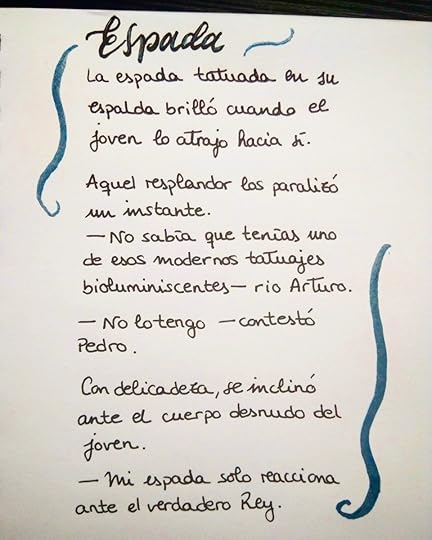 Espada
La espada tatuada en su
espalda brilló cuando el
joven lo atrajo hacia sí.
Aquel resplandor los paralizó
un instante.
— No sabía que tenías uno
de esos modernos tatuajes
bioluminiscentes — rio Arturo.
— No lo tengo — contestó
Pedro.
Con delicadeza, se inclinó
ante el cuerpo desnudo del
joven.
— Mi espada solo reacciona
ante el verdadero Rey.